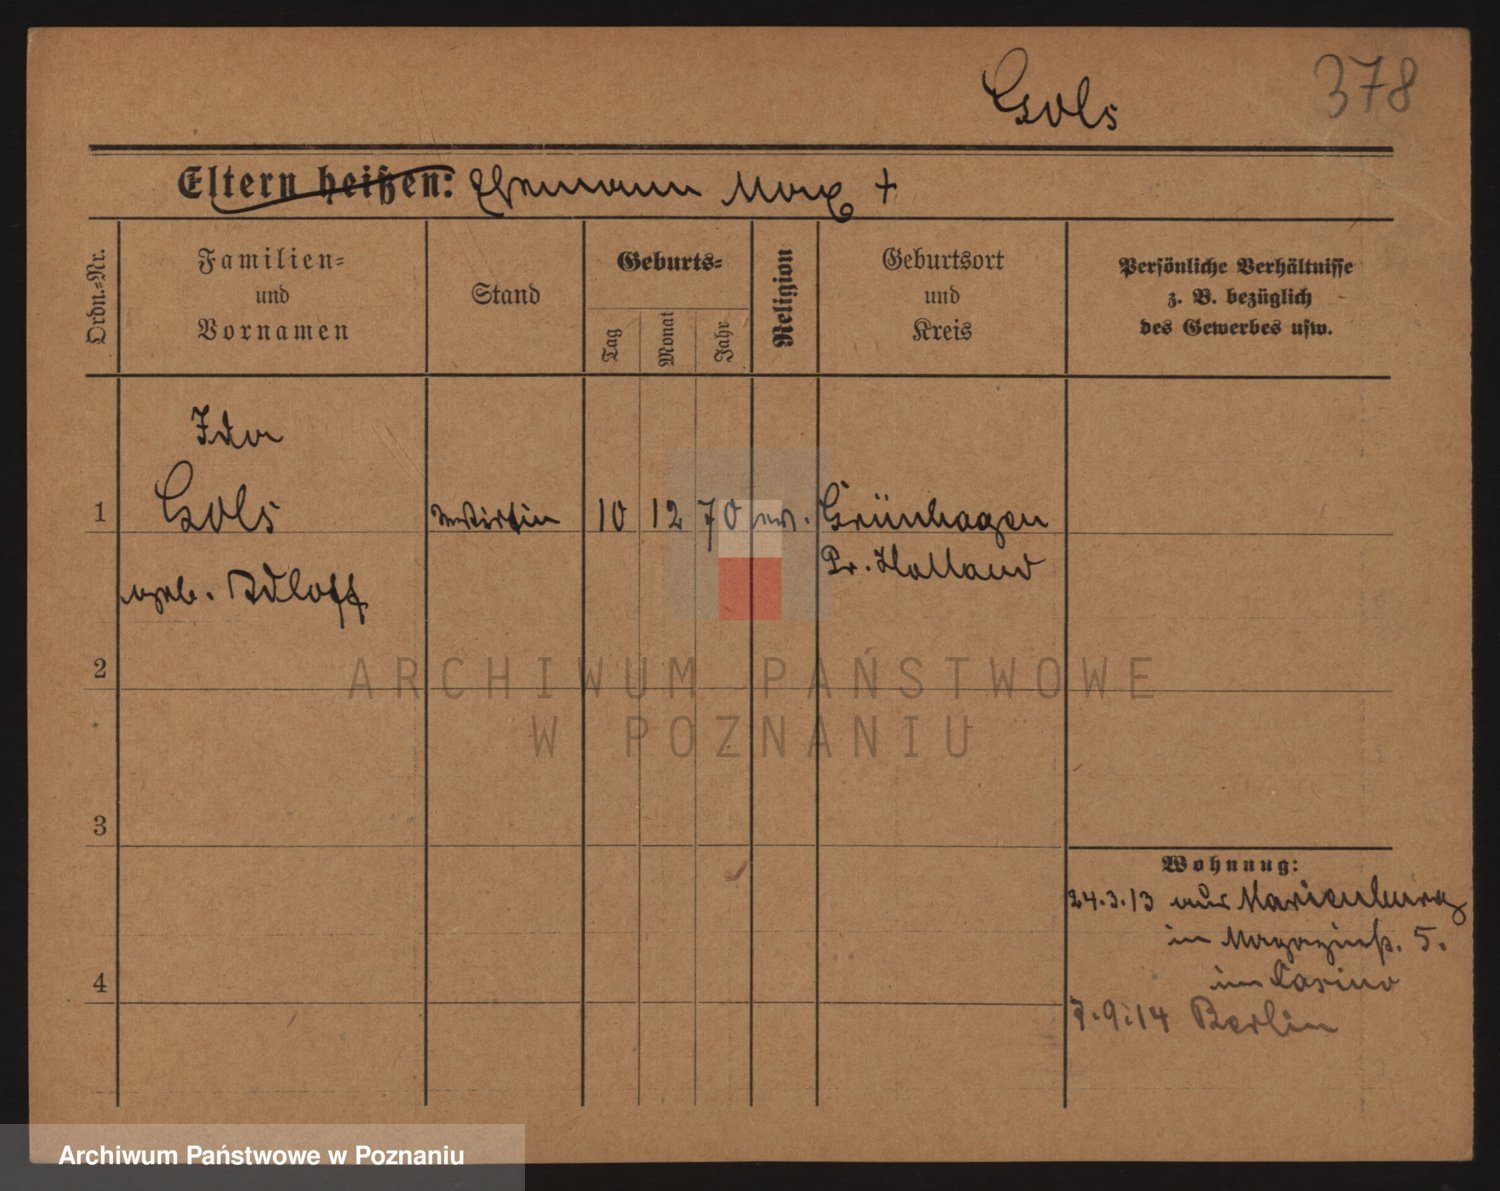 Gols
378
Eltern heißen: Ehemann Max +
Ordn.-Nr.
Familien-
und
Vornamen
Stand
Geburts-
Tag
Monat
Jahr
Religion
Geburtsort
und
Kreis
Persönliche Verhältnisse
z. B. bezüglich
des Gewerbes usw.
Ida
1 Gols Wirtin 10 12 70 ev. Grünhagen
Pr. Holland
geb. Adloff
2
3
4
Wohnung:
24.3.13 aus Marienburg
in Magazinstr. 5.
im Casino
7.9.14 Berlin
ARCHIWUM PAŃSTWOWE
W POZNANIU
Archiwum Państwowe w Poznaniu